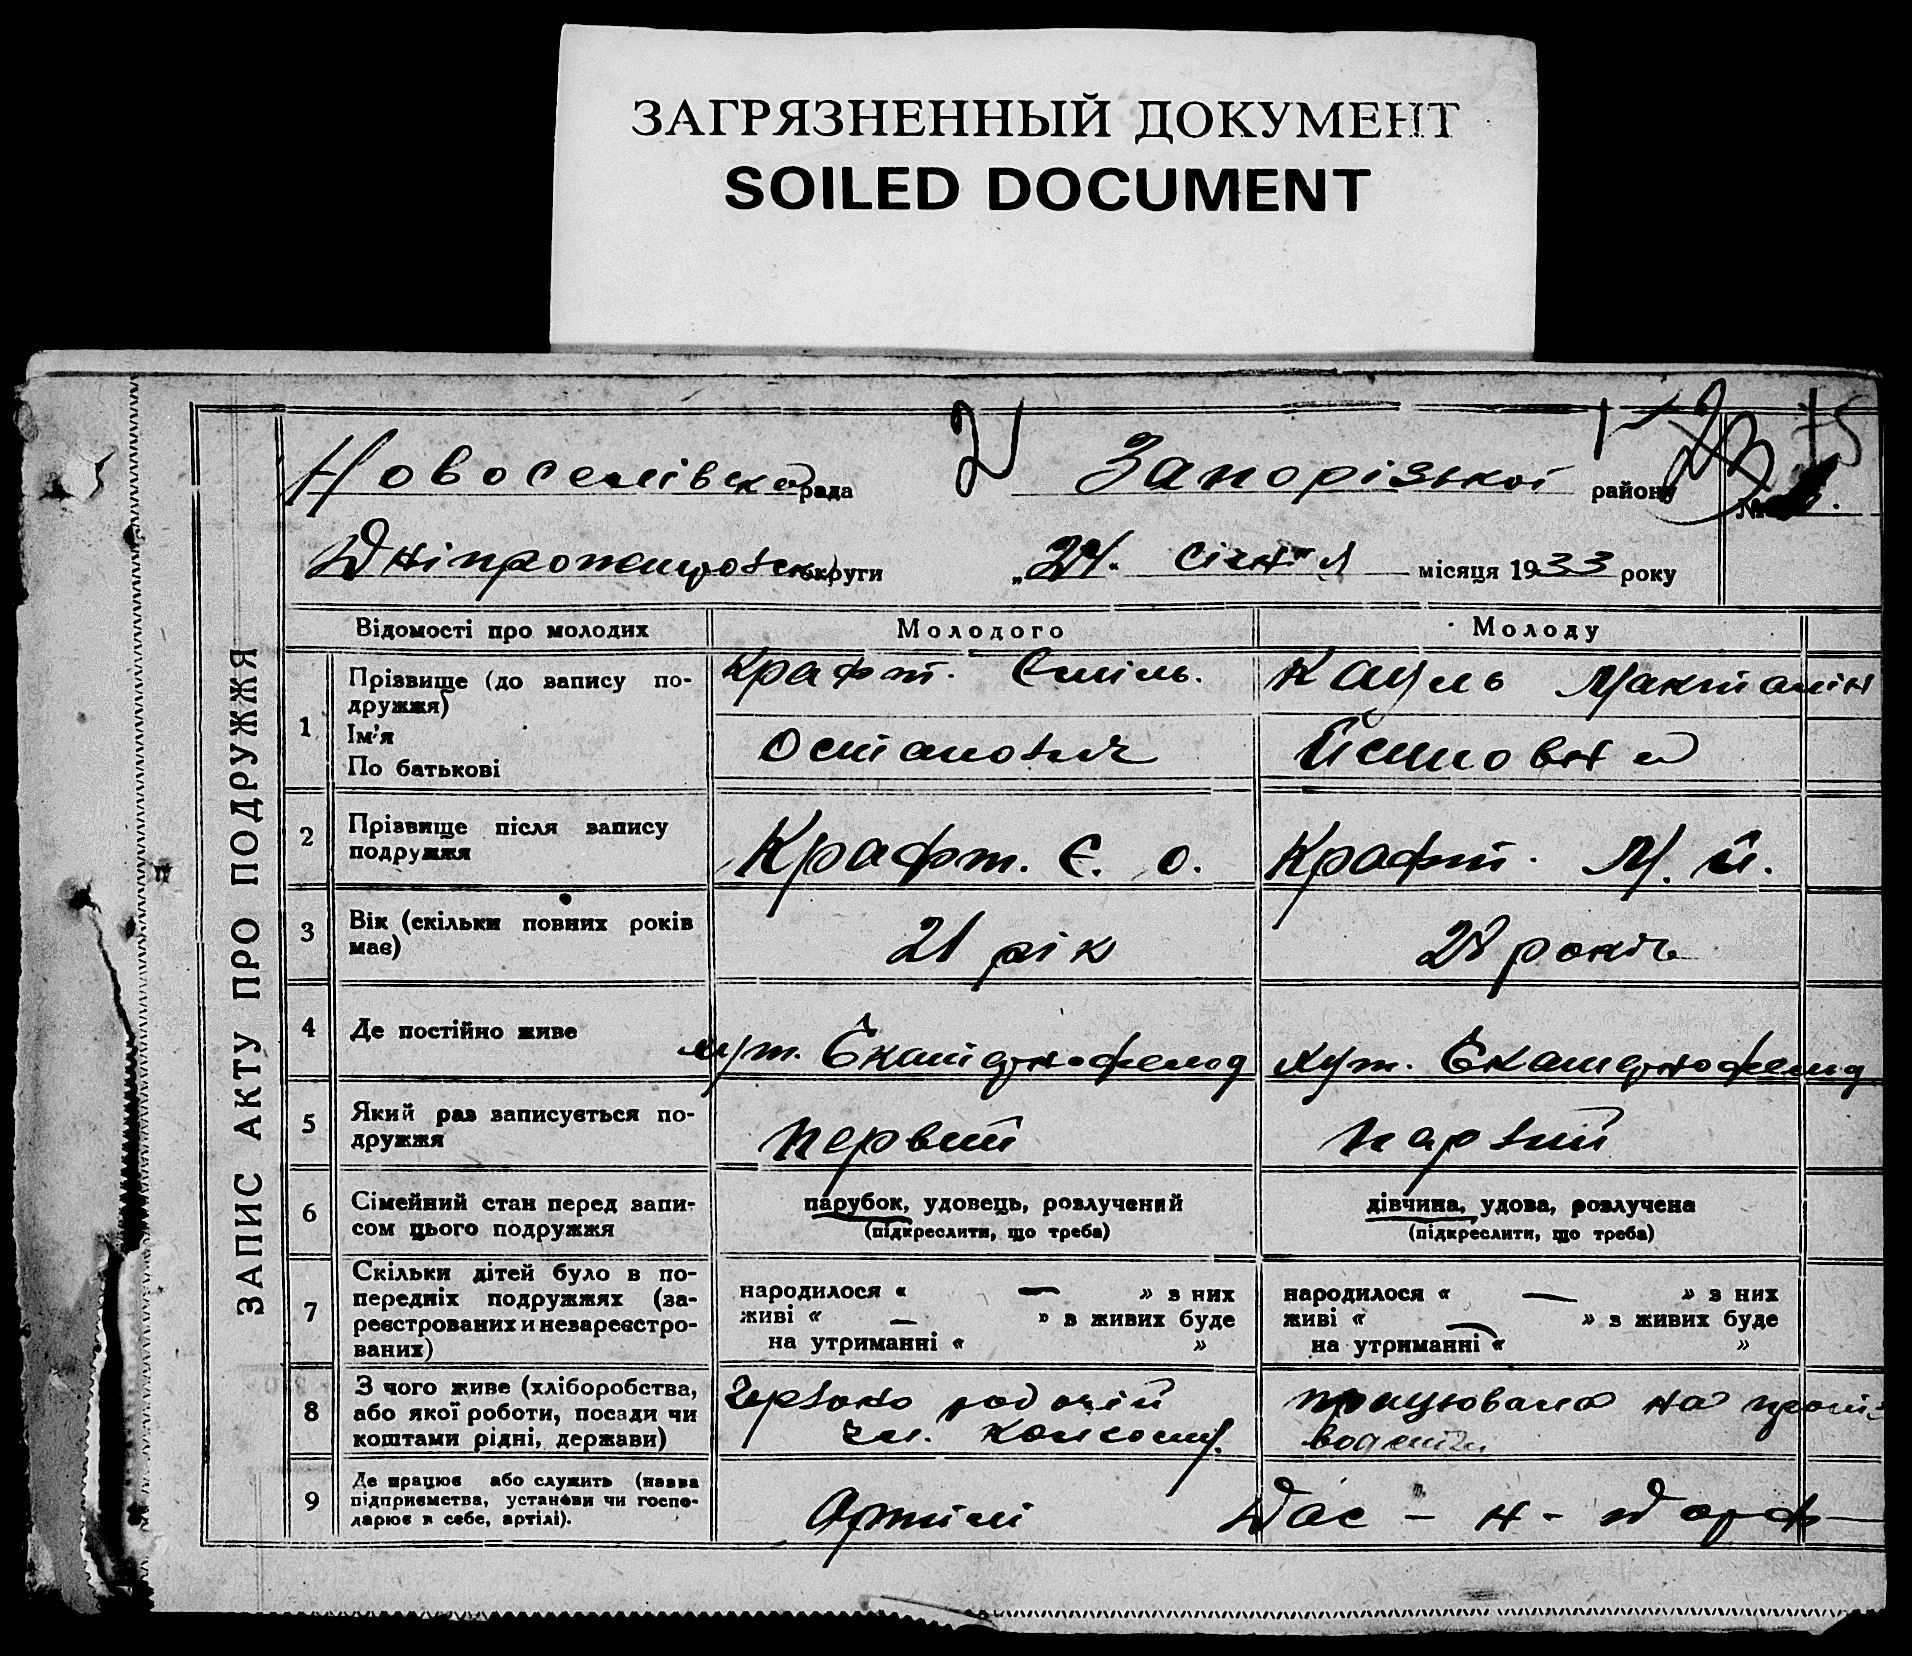 ЗАГРЯЗНЕННЫЙ ДОКУМЕНТ
SOILED DOCUMENT
2
Новоселівська рада Запорізької району №
Дніпропетровськ округи „24“ січня місяця 1933 року
ЗАПИС АКТУ ПРО ПОДРУЖЖЯ
Відомості про молодих Молодого Молоду
1 Прізвище (до запису по-
дружжя)
Ім'я
По батькові
Крафт. Єміль.
Остапович
Кацель
2 Прізвище після запису
подружжя
Крафт. Є. О.
Крафт. М. Й.
3 Вік (скільки повних років
має)
21 рік
28 років
4 Де постійно живе
хут. Єкатерінофельд
хут. Єкатерінофельд
5 Який раз записується по-
дружжя
первий
парвий
6 Сімейний стан перед запи-
сом цього подружжя
парубок, удовець, розлучений
(підкреслити, що треба)
дівчина, удова, розлучена
(підкреслити, що треба)
7 Скільки дітей було в по-
передніх подружжях (за-
реєстрованих и незареєстро-
ваних)
народилося « — » з них
живі « — » в живих буде
на утриманні « »
народилося « — » з них
живі « — » в живих буде
на утриманні « »
8 З чого живе (хліборобства,
або якої роботи, посади чи
коштами рідні, держави)
робочій
чл.
працювала на
9 Де працює або служить (назва
підприємства, установи чи госпо-
дарює в себе, артілі).
Артілі